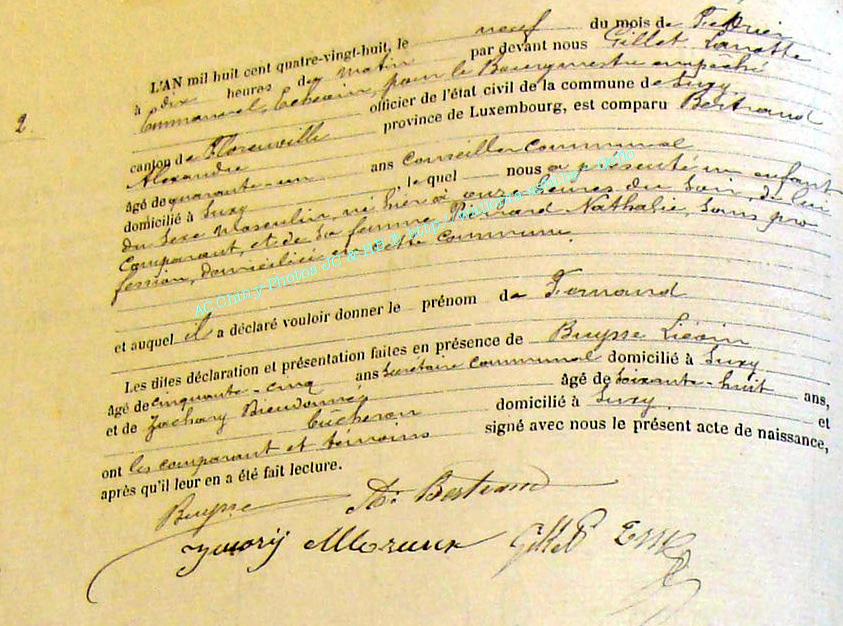 2.
L'AN mil huit cent quatre-vingt-huit, le neuf du mois de Février
à dix heures du matin par devant nous Gillet
Emmanuel, Echevin, pour le Bourgmestre empêché
officier de l'état civil de la commune de Suxy,
canton de Florenville province de Luxembourg, est comparu Bertrand
Alexandre
âgé de quarante-un ans Conseiller Communal
domicilié à Suxy, lequel nous a présenté un enfant
du sexe masculin, né hier à onze heures du soir, de lui
Comparant, et de sa femme Nathalie, sans pro
fession, domiciliée en cette commune.
AC Chiny-Photos JC &
et auquel il a déclaré vouloir donner le prénom de Fernand
Les dites déclaration et présentation faites en présence de Buysse Liévin
âgé de cinquante-cinq ans Secrétaire Communal domicilié à Suxy
et de Dieudonné âgé de soixante-huit ans,
bûcheron domicilié à Suxy, et
ont les comparant et témoins signé avec nous le présent acte de naissance,
après qu'il leur en a été fait lecture.
Buysse Bertrand
Gillet